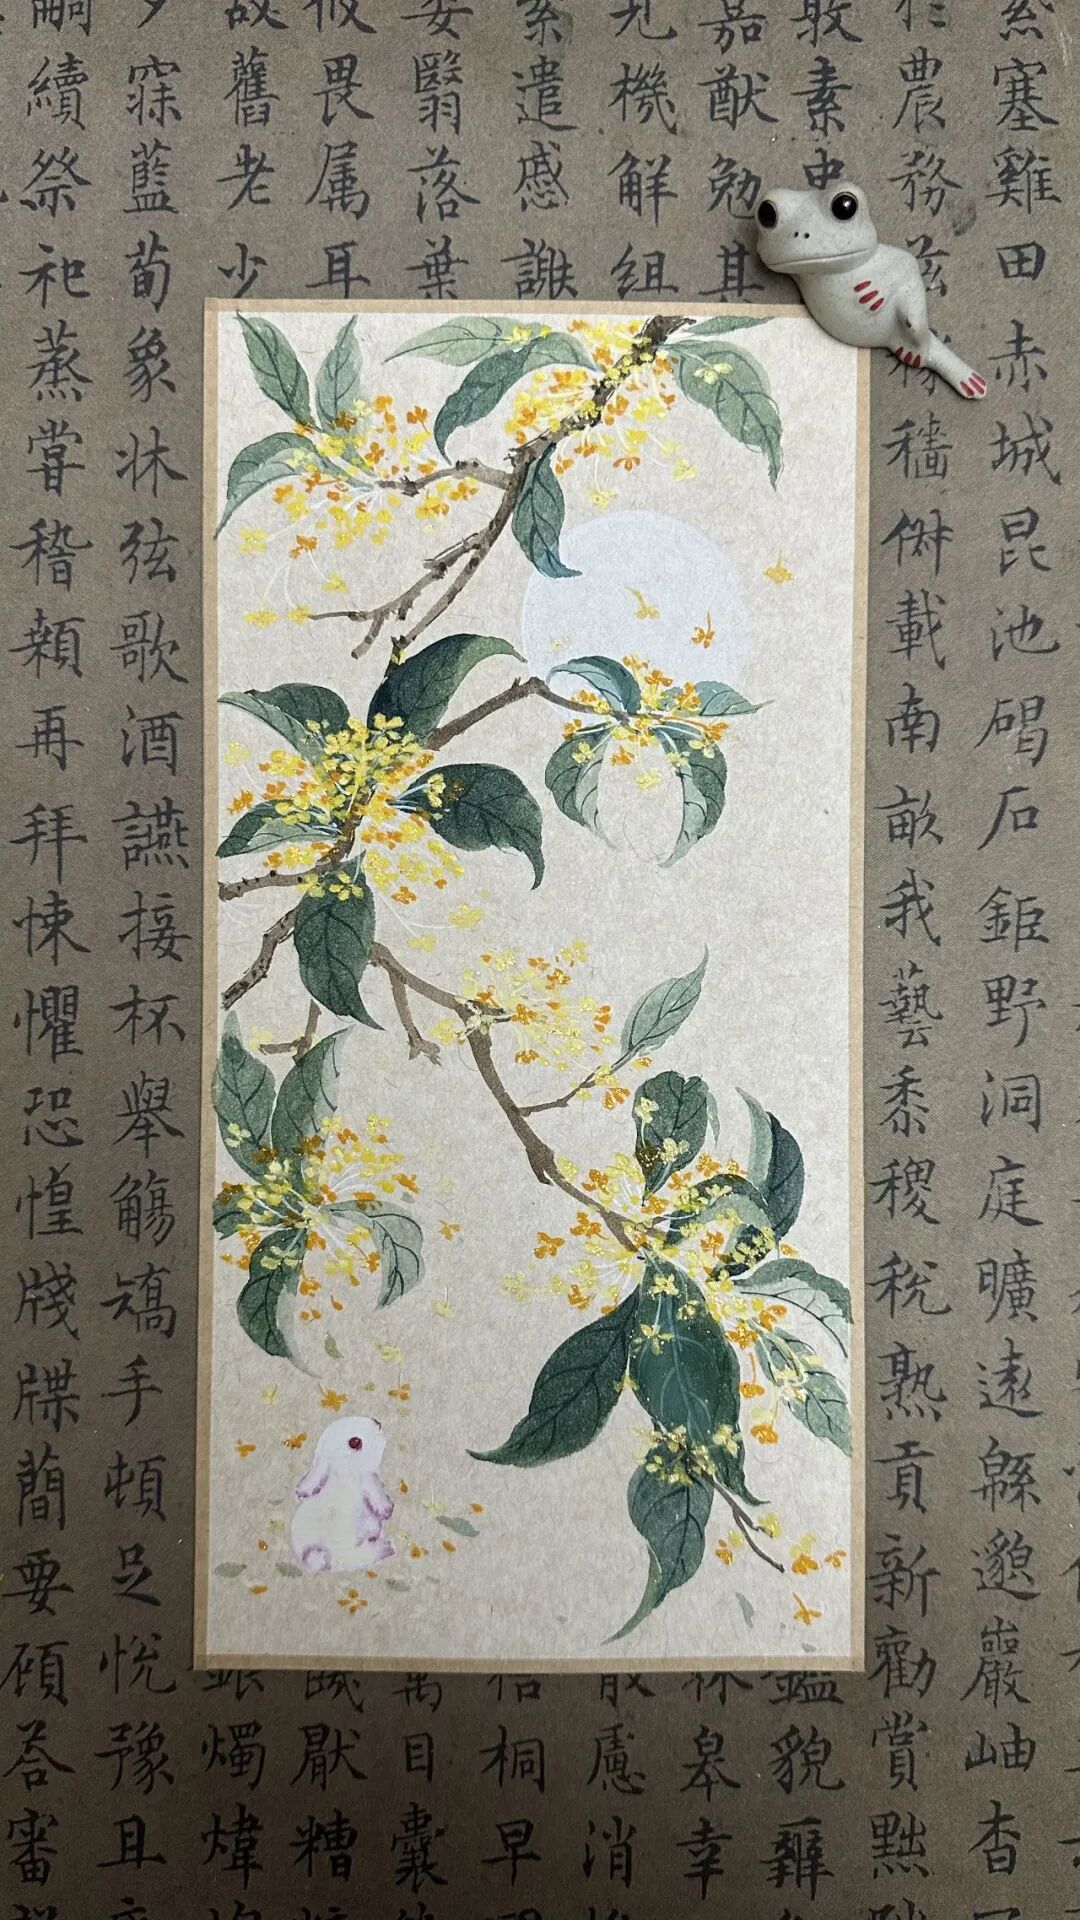 塞雞田赤城昆池碣石鉅野洞庭曠遠緜邈巖岫杳
農務茲稼穡俶載南畝我藝黍稷稅熟貢新勸賞黜陟
敦素史
鑑貌辨
嘉猷勉其
林皋幸
見機解組
散慮消
累遣慼謝
梧桐早
委翳落葉
寓目囊
攸畏属耳
厭糟
故舊老少
銀燭煒
夕寐藍荀象牀弦歌酒讌接杯舉觴矯手頓足悅豫且
嗣續祭祀蒸嘗稽顙再拜悚懼恐惶牋牒簡要顧荅審